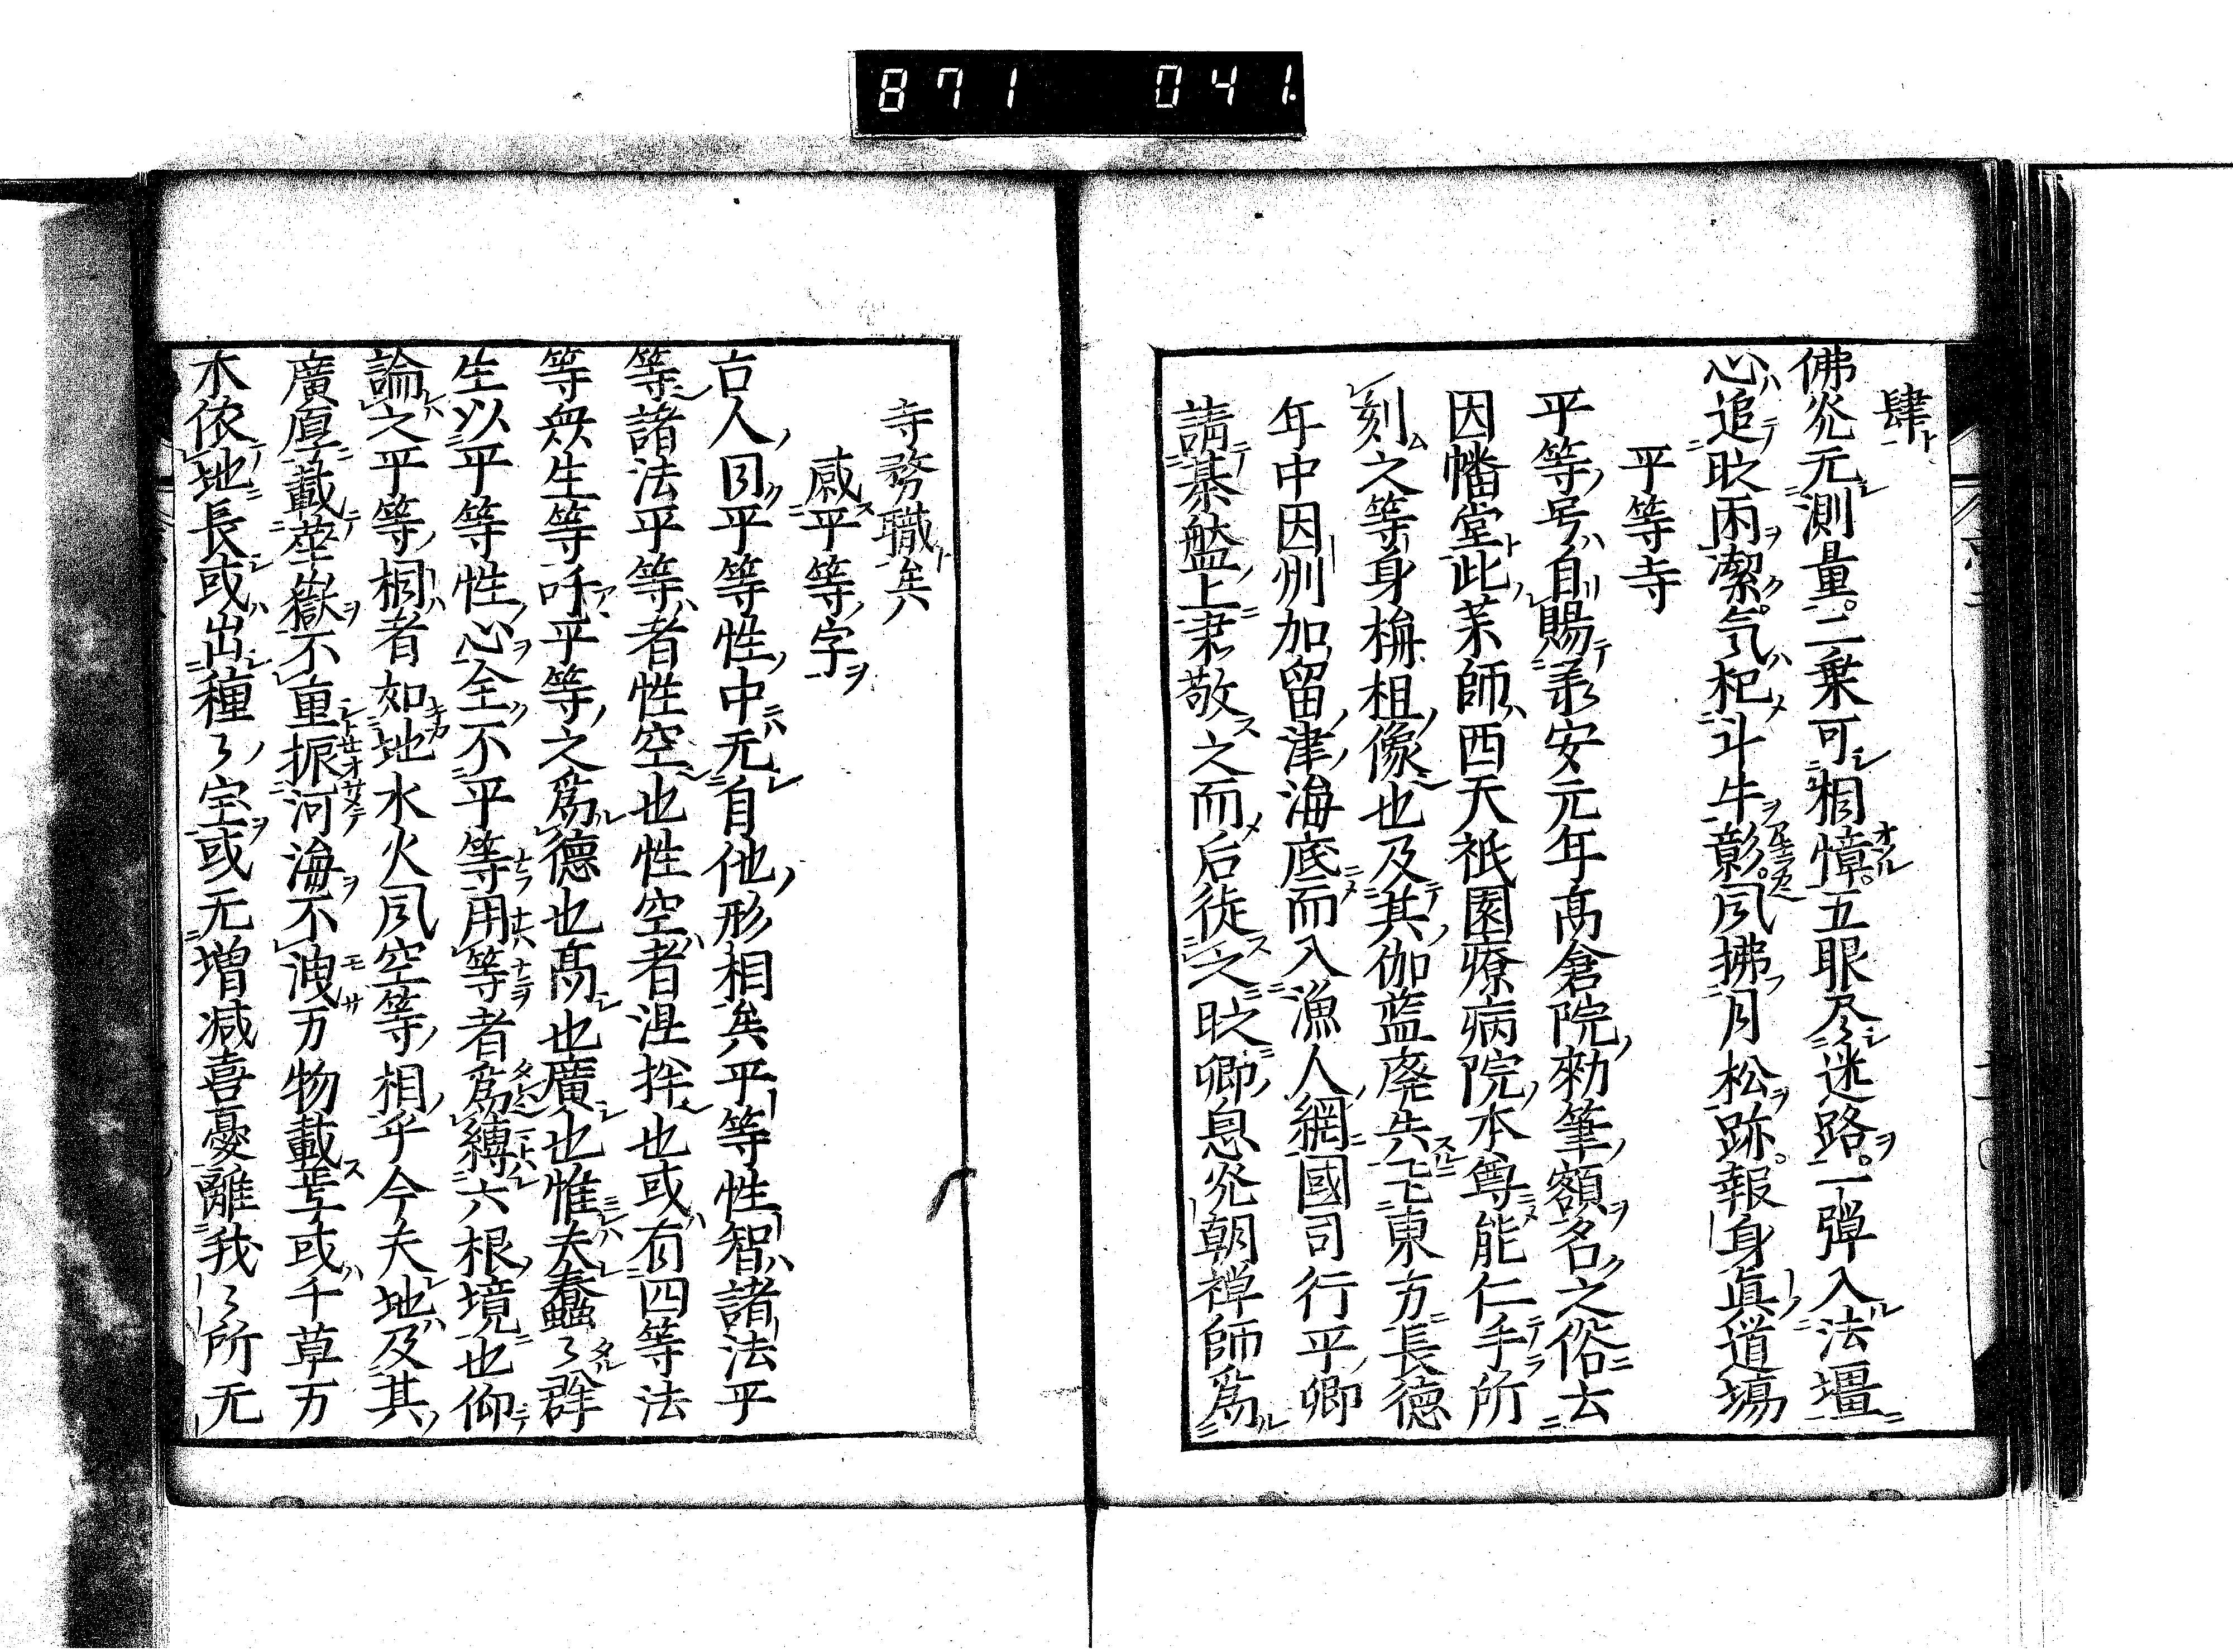 871 041
肆
佛炎无測量。二乗可相憧。五眼尽迷路。一弾入法壇
心追欧雨潔。気杷斗牛彰。凨拂月松跡。報身眞道場
平等寺
平等号自賜承安元年髙倉院勑筆額名之俗云
因幡堂此薬師西天祇園療病院本尊能仁手所
刻之等身栴柤像也及其伽藍廃失飞東方長徳
年中因州加留津海底而入漁人網國司行平卿
請棊盤上肅敬之而后徙之欧卿息炎朝禅師為
寺務職矣
感平等字
古人同平等性中无自他形相矣平等性智諸法平
等諸法平等者性空也性空者涅槃也或有四等法
等無生等呼平等之爲德也髙也廣也惟夫蠢〻群
生以平等性心全不平等用等者爲縛六根境也仰
論之平等相者如地水火凨空等相乎今夫地及其
廣厚載華嶽不重振河海不洩万物載焉或千草万
木依地長或出種〻宝或无増減喜憂離我〻所无